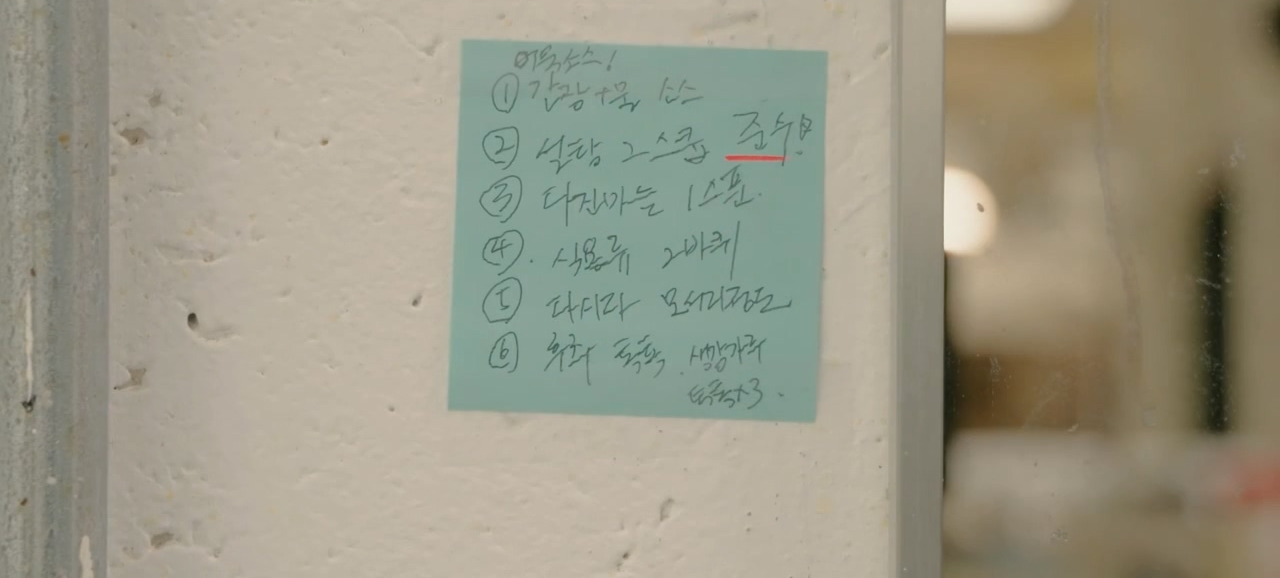 어묵소스!
① 간장+물 소스
② 설탕 2스푼 준수!
③ 다진마늘 1스푼.
④. 식용류 2바퀴
⑤ 다시다 모서리정도
⑥ 후추 톡톡. 생강가루
톡톡×3.